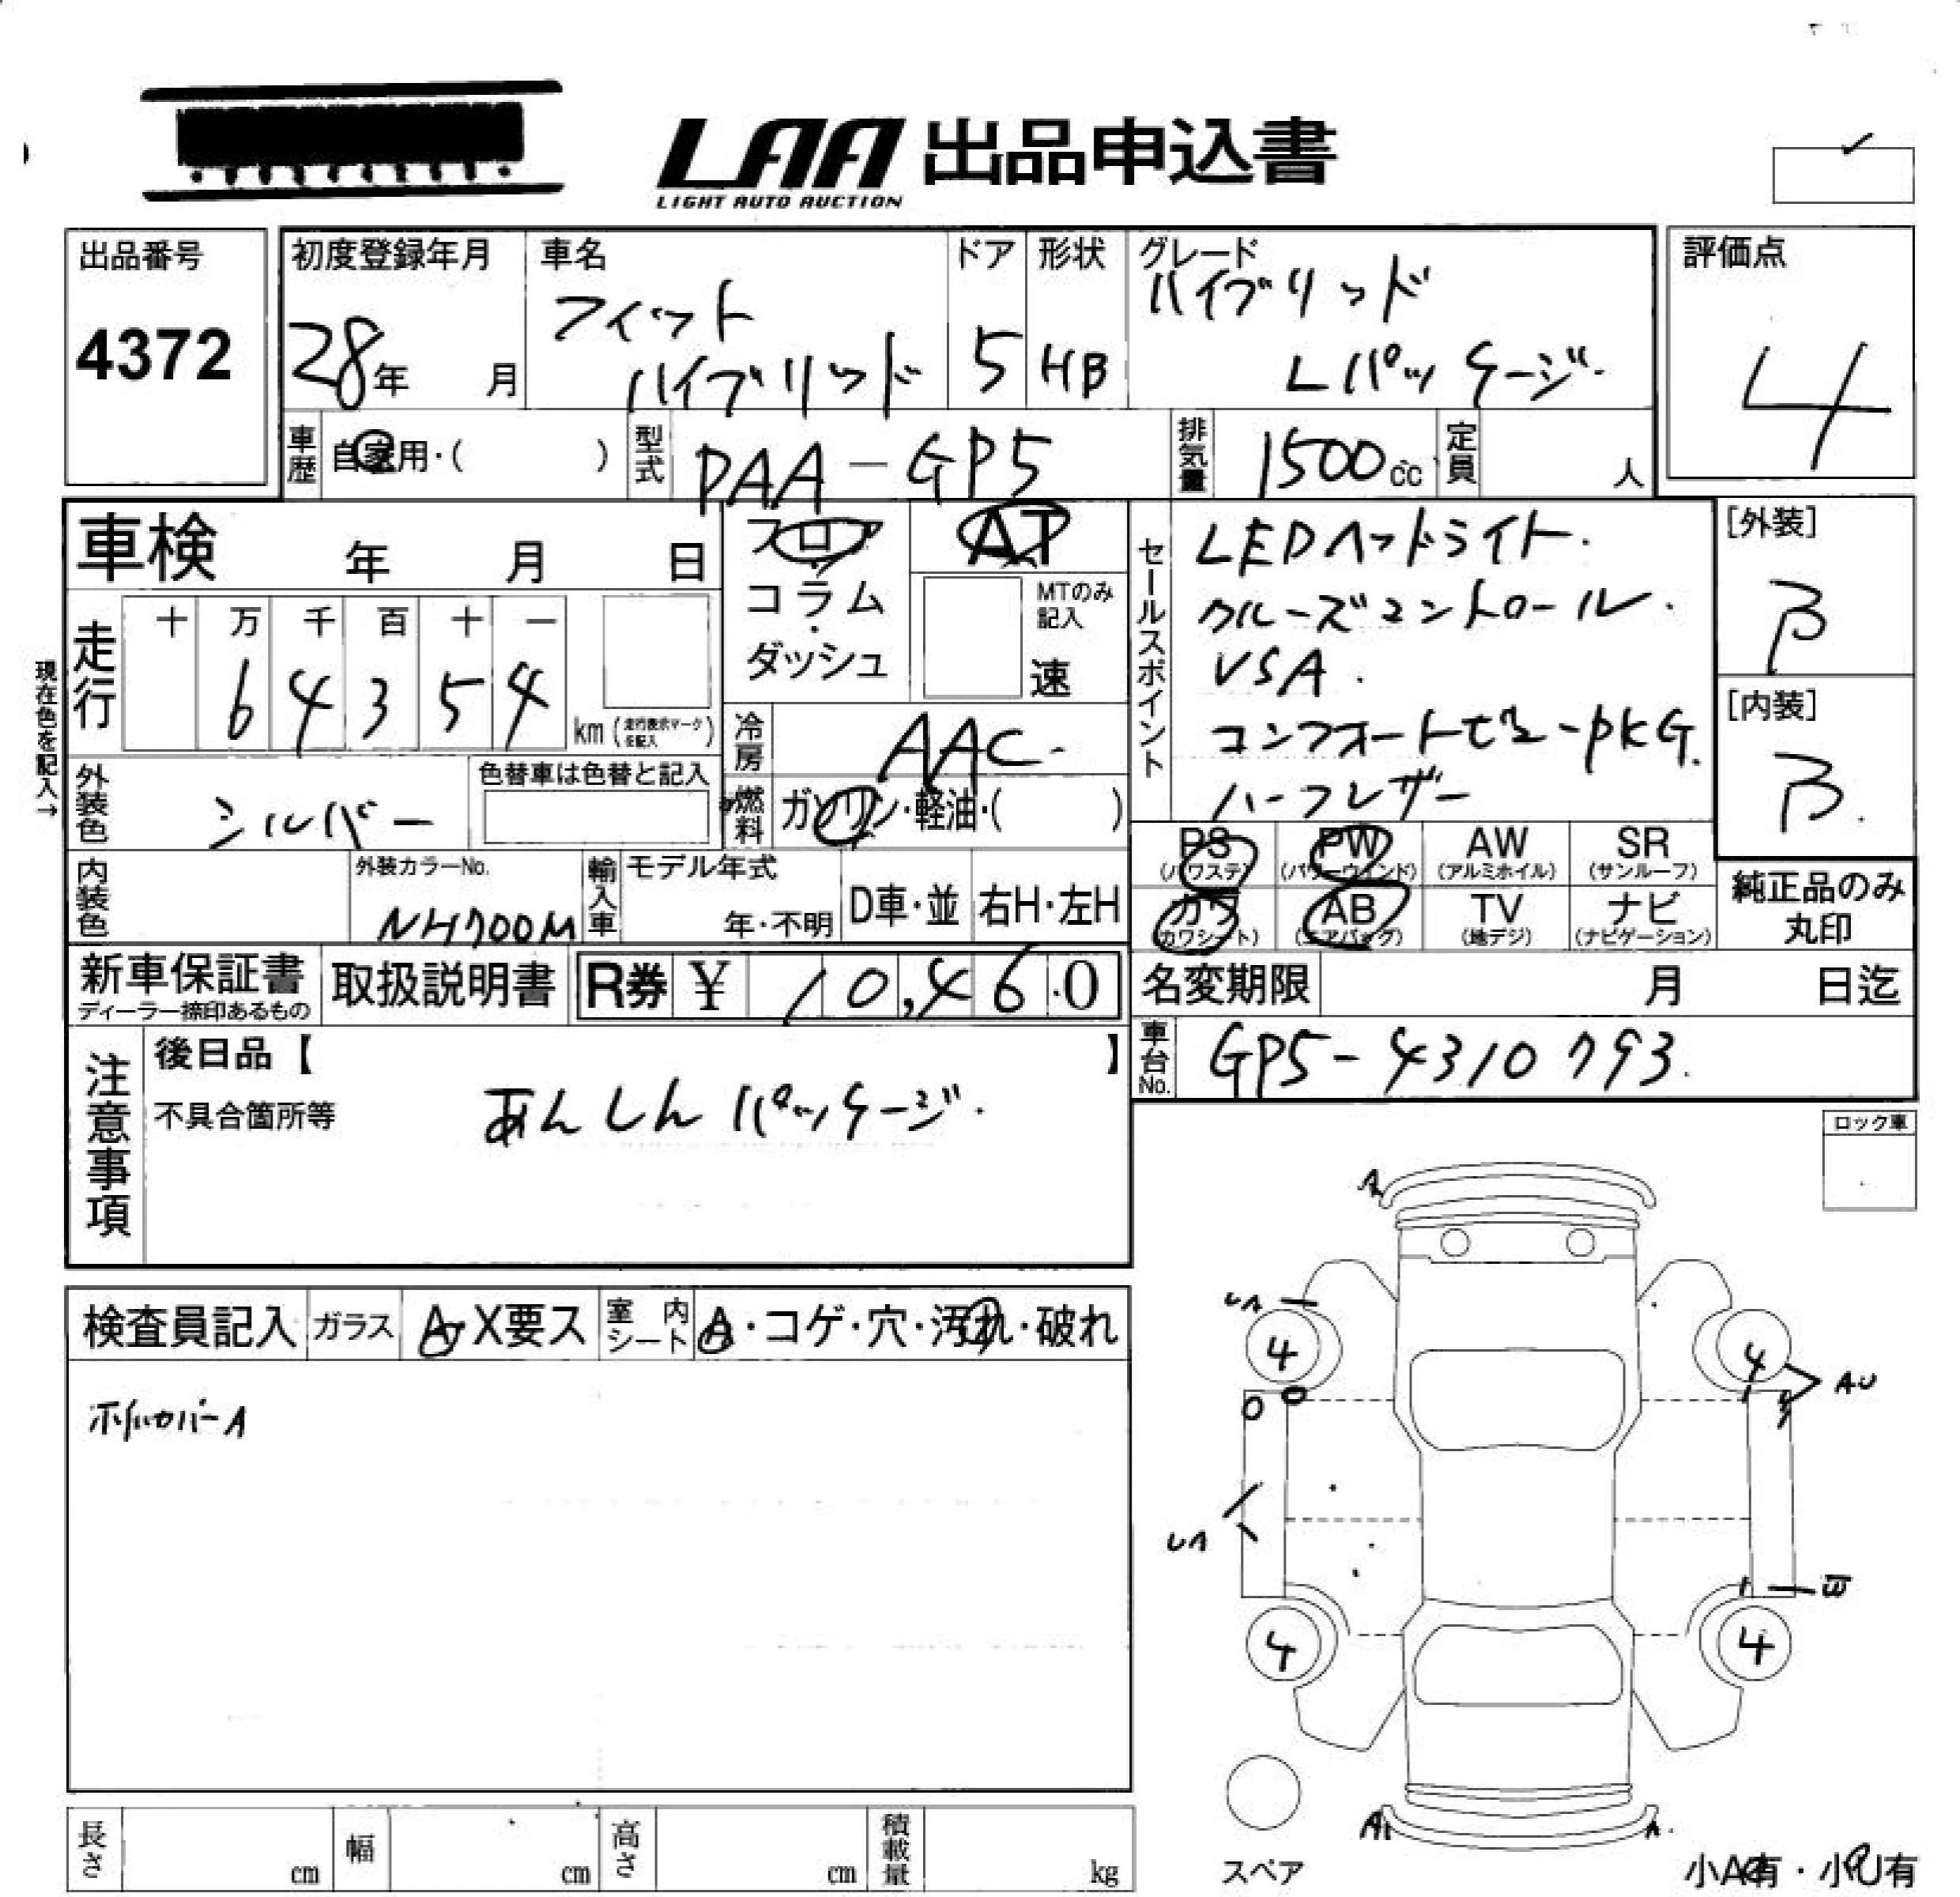 LAA 出品申込書
LIGHT AUTO AUCTION
出品番号
4372
初度登録年月
28年 月
車名
フィット
ハイブリッド
ドア
5
形状
HB
グレード
ハイブリッド
Lパッケージ.
評価点
4
車歴
自家用・( )
型式
PAA-GP5
排気量
1500cc
定員
人
車検 年 月 日
フロア
コラム
・
ダッシュ
AT
MTのみ
記入
速
セールスポイント
LEDヘッドライト.
クルーズコントロール.
VSA.
コンフォートビューPKG.
ハーフレザー
[外装]
B
[内装]
B.
現在色を記入→
走行
十 万 千 百 十 一
6 4 3 5 4
km (走行表示マーク
を記入)
冷房
AAC-
外装色
シルバー
色替車は色替と記入
燃料
ガソリン・軽油・( )
PS
(パワステ)
PW
(パワーウインド)
AW
(アルミホイル)
SR
(サンルーフ)
カワ
(カワシート)
AB
(エアバッグ)
TV
(地デジ)
ナビ
(ナビゲーション)
純正品のみ
丸印
内装色
外装カラーNo.
NH700M
輸入車
モデル年式
年・不明
D車・並
右H・左H
新車保証書
ディーラー捺印あるもの
取扱説明書
R券 ¥ 10,460
名変期限 月 日迄
車台No.
GP5-4310793.
注意事項
後日品【 】
不具合箇所等
あんしんパッケージ.
ロック車
検査員記入
ガラス
A・X要ス
室内
シート
A・コゲ・穴・汚れ・破れ
ホイルカバーA
A
UA
4
4
AU
UA
W
4
4
A
A.
スペア
長さ
cm
幅
cm
高さ
cm
積載量
kg
小A有・小U有